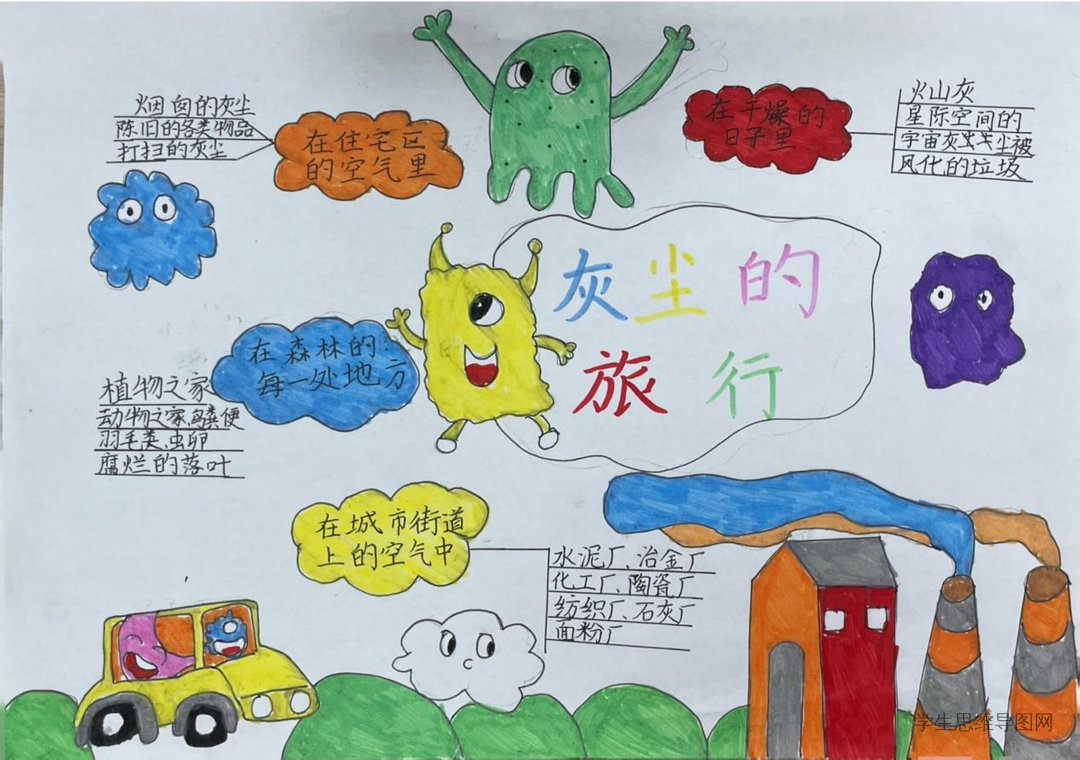 灰尘的
旅行
烟囱的灰尘
陈旧的各类物品
打扫的灰尘
在住宅区
的空气里
在干燥的
日子里
火山灰
星际空间的
宇宙灰尘尘被
风化的垃圾
在森林的
每一处地方
植物之家
动物之家、粪便
羽毛类、虫卵
腐烂的落叶
在城市街道
上的空气中
水泥厂、冶金厂
化工厂、陶瓷厂
纺织厂、石灰厂
面粉厂
学生思维导图网